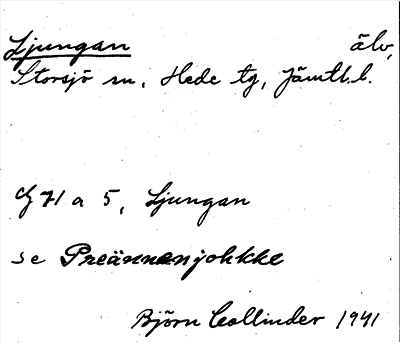 Ljungan älv,
Storsjö sn, Hede tg, Jämtl. l.
G 71 a 5, Ljungan
se Preännanjohkke
Björn Collinder 1941